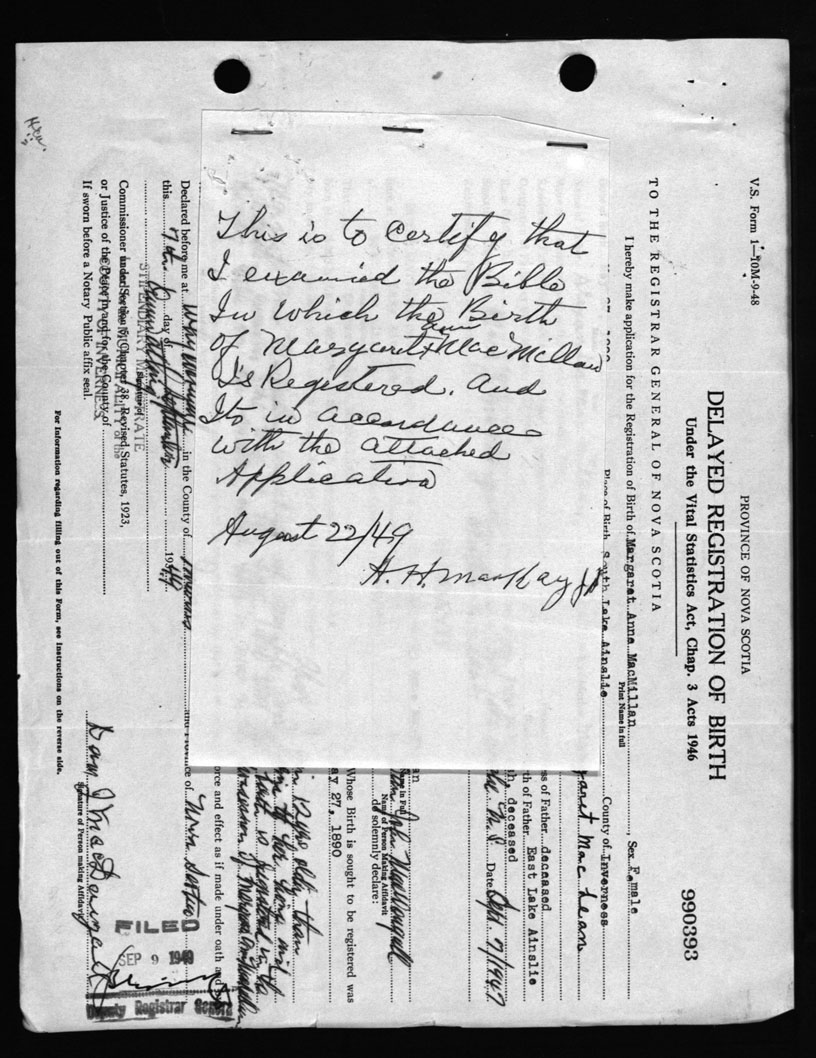 This is to Certify that
I examined the Bible
In which the Birth
of Margaret Ann MacMillan
Is Registered. And
Its in accordance
with the attached
Application
August 22/49
H. H. MacKay J.P.
V.S. Form 1—10M-9-48
PROVINCE OF NOVA SCOTIA
DELAYED REGISTRATION OF BIRTH
Under the Vital Statistics Act, Chap. 3 Acts 1946
990393
TO THE REGISTRAR GENERAL OF NOVA SCOTIA
I hereby make application for the Registration of Birth of Margaret Anne MacMillan, Sex Female
Print Name in full
Place of Birth South Lake Ainslie County of Inverness
garet Mac Lean
ss of Father deceased
th of Father East Lake Ainslie
deceased
N.S. Date Sept. 7/1947
an
Name in Full
Name of Person Making Affidavit
do solemnly declare:
Whose Birth is sought to be registered was
ay 27, 1890
12 yrs older than
orce and effect as if made under oath and
Declared before me at in the County of Inverness and Province of Nova Scotia
this 7th day of September 19
STIPENDIARY MAGISTRATE
MUNICIPALITY of the
COUNTY OF INVERNESS
Commissioner under Section 6, Chapter 38, Revised Statutes, 1923,
or Justice of the Peace in and for the County of
If sworn before a Notary Public affix seal.
Dan J MacDougall
Signature of Person making Affidavit
FILED
SEP 9 1949
Deputy Registrar General
For Information regarding filling out of this Form, see Instructions on the reverse side.